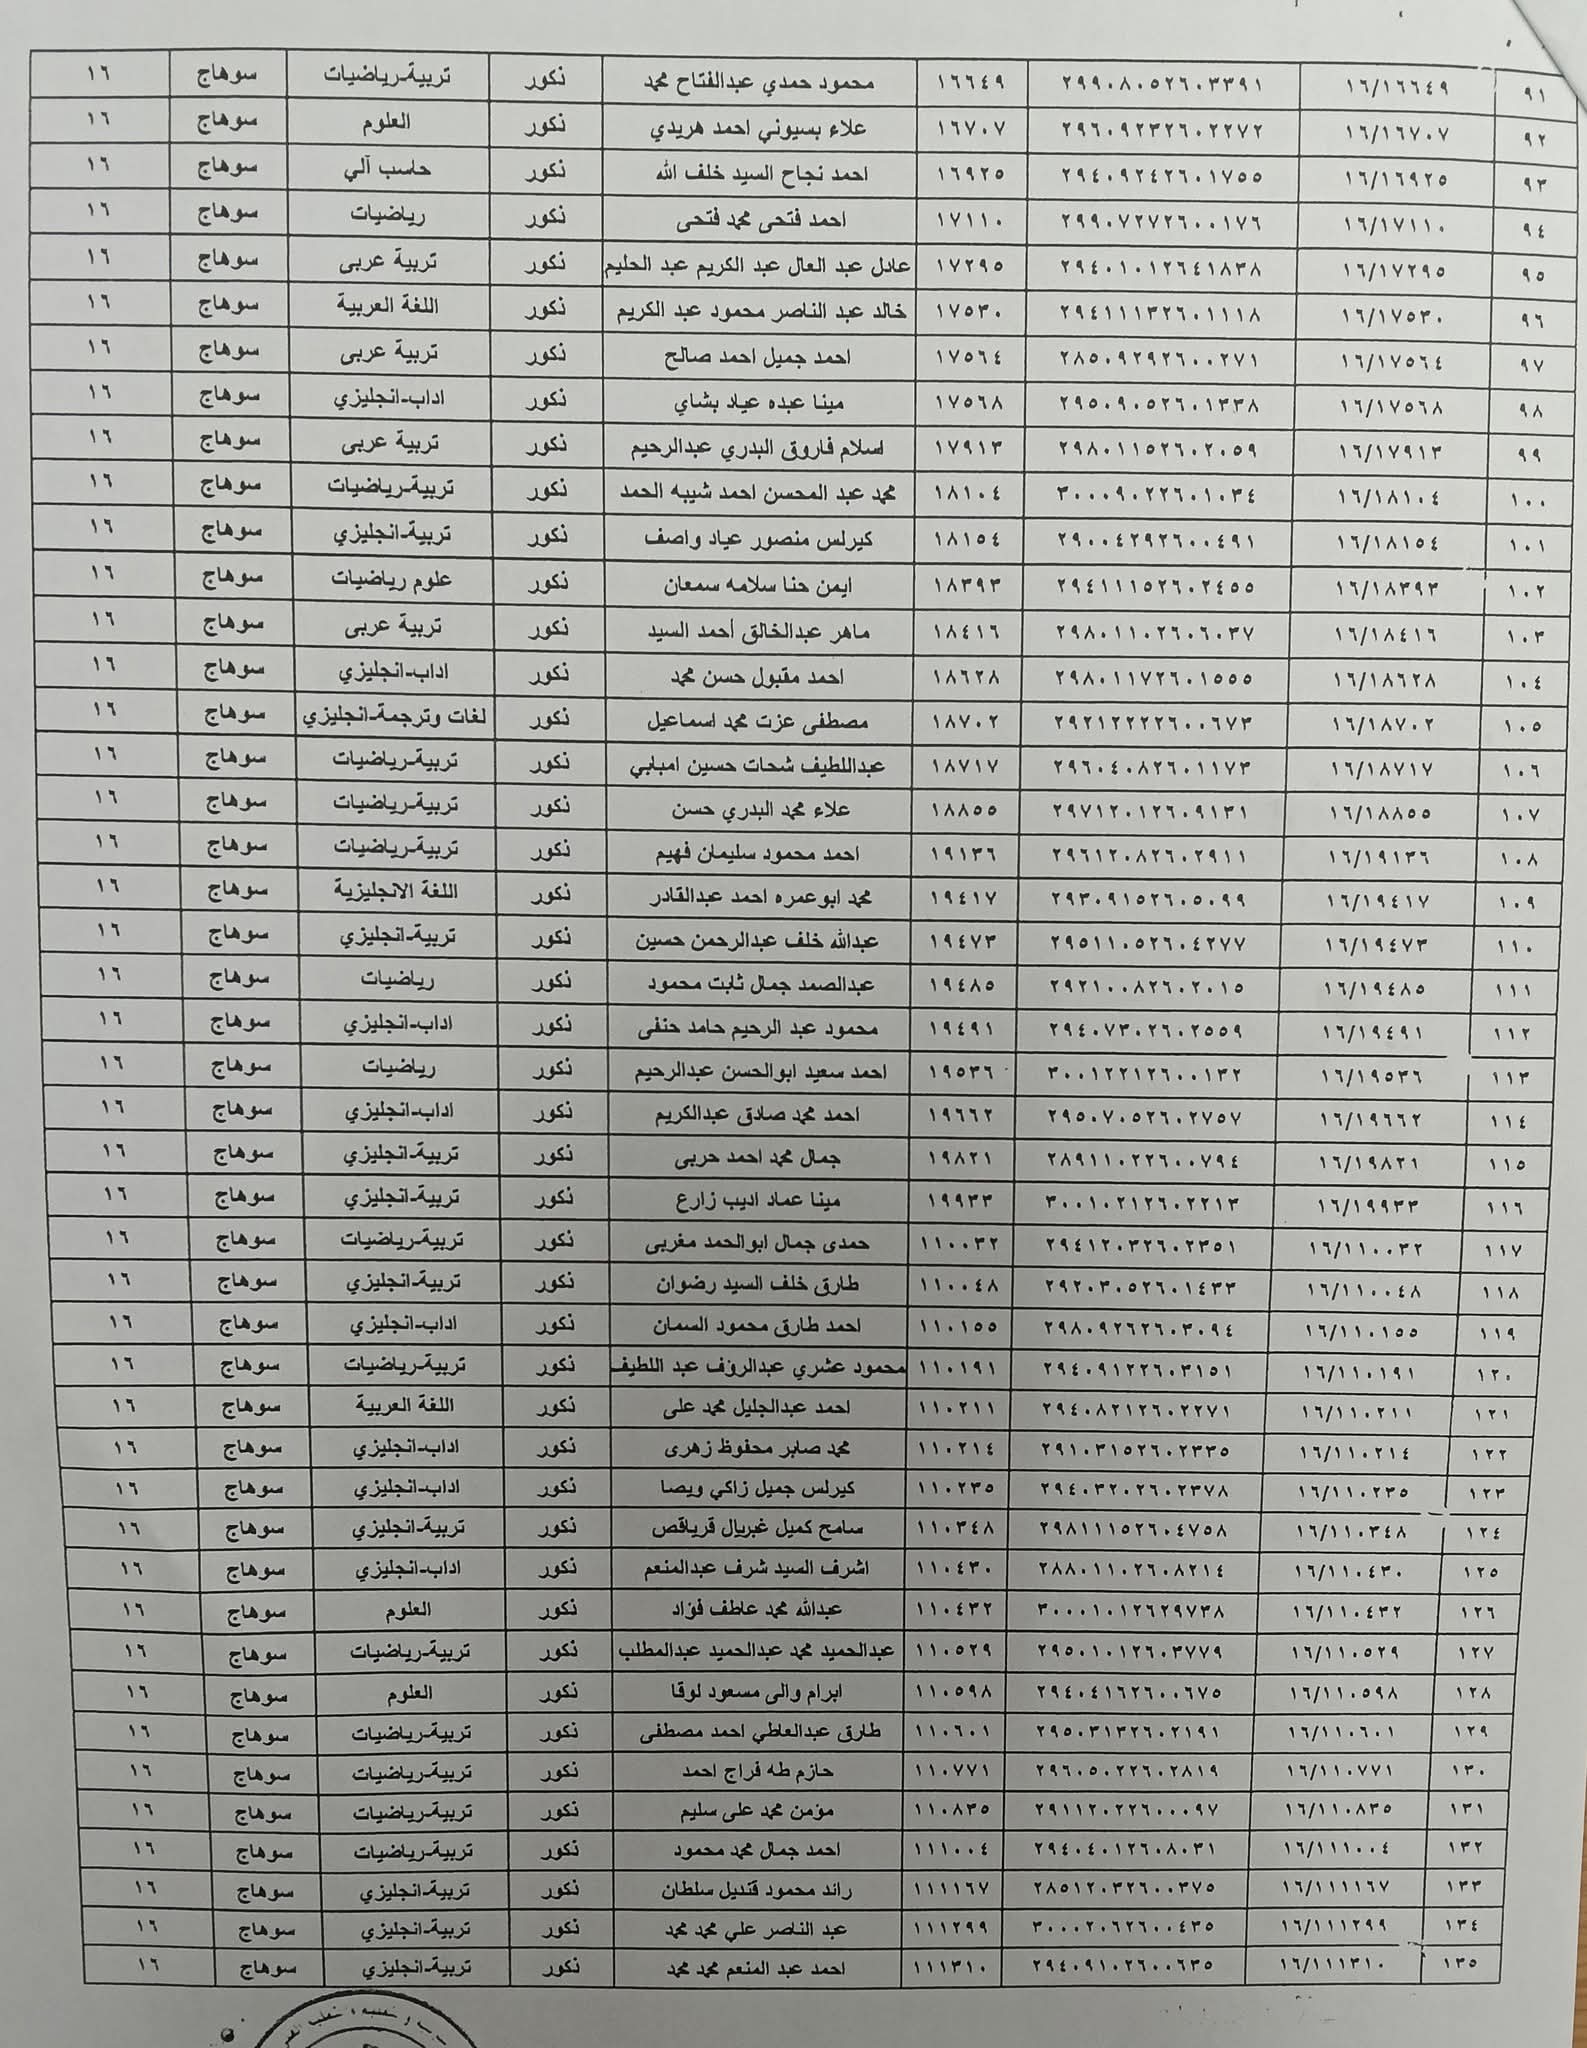 ٩١ ١٦/١٦٦٤٩ ٢٩٩٠٨٠٥٢٦٠٣٣٩١ ١٦٦٤٩ محمود حمدي عبدالفتاح محمد ذكور تربية-رياضيات سوهاج ١٦
٩٢ ١٦/١٦٧٠٧ ٢٩٦٠٩٢٣٢٦٠٢٢٧٢ ١٦٧٠٧ علاء بسيوني احمد هريدي ذكور العلوم سوهاج ١٦
٩٣ ١٦/١٦٩٢٥ ٢٩٤٠٩٢٤٢٦٠١٧٥٥ ١٦٩٢٥ احمد نجاح السيد خلف الله ذكور حاسب آلي سوهاج ١٦
٩٤ ١٦/١٧١١٠ ٢٩٩٠٧٢٧٢٦٠٠١٧٦ ١٧١١٠ احمد فتحى محمد فتحى ذكور رياضيات سوهاج ١٦
٩٥ ١٦/١٧٢٩٥ ٢٩٤٠١٠١٢٦٤١٨٣٨ ١٧٢٩٥ عادل عبد العال عبد الكريم عبد الحليم ذكور تربية عربى سوهاج ١٦
٩٦ ١٦/١٧٥٣٠ ٢٩٤١١١٣٢٦٠١١١٨ ١٧٥٣٠ خالد عبد الناصر محمود عبد الكريم ذكور اللغة العربية سوهاج ١٦
٩٧ ١٦/١٧٥٦٤ ٢٨٥٠٩٢٩٢٦٠٠٢٧١ ١٧٥٦٤ احمد جميل احمد صالح ذكور تربية عربى سوهاج ١٦
٩٨ ١٦/١٧٥٦٨ ٢٩٥٠٩٠٥٢٦٠١٣٣٨ ١٧٥٦٨ مينا عبده عياد بشاي ذكور اداب-انجليزي سوهاج ١٦
٩٩ ١٦/١٧٩١٣ ٢٩٨٠١١٥٢٦٠٢٠٥٩ ١٧٩١٣ اسلام فاروق البدري عبدالرحيم ذكور تربية عربى سوهاج ١٦
١٠٠ ١٦/١٨١٠٤ ٣٠٠٠٩٠٢٢٦٠١٠٣٤ ١٨١٠٤ محمد عبد المحسن احمد شيبه الحمد ذكور تربية-رياضيات سوهاج ١٦
١٠١ ١٦/١٨١٥٤ ٢٩٠٠٤٢٩٢٦٠٠٤٩١ ١٨١٥٤ كيرلس منصور عياد واصف ذكور تربية-انجليزي سوهاج ١٦
١٠٢ ١٦/١٨٣٩٣ ٢٩٤١١١٥٢٦٠٢٤٥٥ ١٨٣٩٣ ايمن حنا سلامه سمعان ذكور علوم رياضيات سوهاج ١٦
١٠٣ ١٦/١٨٤١٦ ٢٩٨٠١١٠٢٦٠٦٠٣٧ ١٨٤١٦ ماهر عبدالخالق أحمد السيد ذكور تربية عربى سوهاج ١٦
١٠٤ ١٦/١٨٦٢٨ ٢٩٨٠١١٧٢٦٠١٥٥٥ ١٨٦٢٨ احمد مقبول حسن محمد ذكور اداب-انجليزي سوهاج ١٦
١٠٥ ١٦/١٨٧٠٢ ٢٩٢١٢٢٢٢٦٠٠٦٧٣ ١٨٧٠٢ مصطفى عزت محمد اسماعيل ذكور لغات وترجمة-انجليزي سوهاج ١٦
١٠٦ ١٦/١٨٧١٧ ٢٩٦٠٤٠٨٢٦٠١١٧٣ ١٨٧١٧ عبداللطيف شحات حسين امبابي ذكور تربية-رياضيات سوهاج ١٦
١٠٧ ١٦/١٨٨٥٥ ٢٩٧١٢٠١٢٦٠٩١٣١ ١٨٨٥٥ علاء محمد البدري حسن ذكور تربية-رياضيات سوهاج ١٦
١٠٨ ١٦/١٩١٣٦ ٢٩٦١٢٠٨٢٦٠٢٩١١ ١٩١٣٦ احمد محمود سليمان فهيم ذكور تربية-رياضيات سوهاج ١٦
١٠٩ ١٦/١٩٤١٧ ٢٩٣٠٩١٥٢٦٠٥٠٩٩ ١٩٤١٧ محمد ابوعمره احمد عبدالقادر ذكور اللغة الانجليزية سوهاج ١٦
١١٠ ١٦/١٩٤٧٣ ٢٩٥١١٠٥٢٦٠٤٢٧٧ ١٩٤٧٣ عبدالله خلف عبدالرحمن حسين ذكور تربية-انجليزي سوهاج ١٦
١١١ ١٦/١٩٤٨٥ ٢٩٢١٠٠٨٢٦٠٢٠١٥ ١٩٤٨٥ عبدالصمد جمال ثابت محمود ذكور رياضيات سوهاج ١٦
١١٢ ١٦/١٩٤٩١ ٢٩٤٠٧٣٠٢٦٠٢٥٥٩ ١٩٤٩١ محمود عبد الرحيم حامد حنفى ذكور اداب-انجليزي سوهاج ١٦
١١٣ ١٦/١٩٥٣٦ ٣٠٠١٢٢١٢٦٠٠١٣٢ ١٩٥٣٦ احمد سعيد ابوالحسن عبدالرحيم ذكور رياضيات سوهاج ١٦
١١٤ ١٦/١٩٦٦٢ ٢٩٥٠٧٠٥٢٦٠٢٧٥٧ ١٩٦٦٢ احمد محمد صادق عبدالكريم ذكور اداب-انجليزي سوهاج ١٦
١١٥ ١٦/١٩٨٢١ ٢٨٩١١٠٢٢٦٠٠٧٩٤ ١٩٨٢١ جمال محمد احمد حربى ذكور تربية-انجليزي سوهاج ١٦
١١٦ ١٦/١٩٩٣٣ ٣٠٠١٠٢١٢٦٠٢٢١٣ ١٩٩٣٣ مينا عماد اديب زارع ذكور تربية-انجليزي سوهاج ١٦
١١٧ ١٦/١١٠٠٣٢ ٢٩٤١٢٠٣٢٦٠٢٣٥١ ١١٠٠٣٢ حمدى جمال ابوالحمد مغربى ذكور تربية-رياضيات سوهاج ١٦
١١٨ ١٦/١١٠٠٤٨ ٢٩٢٠٣٠٥٢٦٠١٤٣٣ ١١٠٠٤٨ طارق خلف السيد رضوان ذكور تربية-انجليزي سوهاج ١٦
١١٩ ١٦/١١٠١٥٥ ٢٩٨٠٩٢٦٢٦٠٣٠٩٤ ١١٠١٥٥ احمد طارق محمود السمان ذكور اداب-انجليزي سوهاج ١٦
١٢٠ ١٦/١١٠١٩١ ٢٩٤٠٩١٢٢٦٠٣١٥١ ١١٠١٩١ محمود عشري عبدالرؤف عبد اللطيف ذكور تربية-رياضيات سوهاج ١٦
١٢١ ١٦/١١٠٢١١ ٢٩٤٠٨٢١٢٦٠٢٢٧١ ١١٠٢١١ احمد عبدالجليل محمد على ذكور اللغة العربية سوهاج ١٦
١٢٢ ١٦/١١٠٢١٤ ٢٩١٠٣١٥٢٦٠٢٣٣٥ ١١٠٢١٤ محمد صابر محفوظ زهرى ذكور اداب-انجليزي سوهاج ١٦
١٢٣ ١٦/١١٠٢٣٥ ٢٩٤٠٣٢٠٢٦٠٢٣٧٨ ١١٠٢٣٥ كيرلس جميل زاكي ويصا ذكور اداب-انجليزي سوهاج ١٦
١٢٤ ١٦/١١٠٣٤٨ ٢٩٨١١١٥٢٦٠٤٧٥٨ ١١٠٣٤٨ سامح كميل غبريال قرياقص ذكور تربية-انجليزي سوهاج ١٦
١٢٥ ١٦/١١٠٤٣٠ ٢٨٨٠١١٠٢٦٠٨٢١٤ ١١٠٤٣٠ اشرف السيد شرف عبدالمنعم ذكور اداب-انجليزي سوهاج ١٦
١٢٦ ١٦/١١٠٤٣٢ ٣٠٠٠١٠١٢٦٢٩٧٣٨ ١١٠٤٣٢ عبدالله محمد عاطف فؤاد ذكور العلوم سوهاج ١٦
١٢٧ ١٦/١١٠٥٢٩ ٢٩٥٠١٠١٢٦٠٣٧٧٩ ١١٠٥٢٩ عبدالحميد محمد عبدالحميد عبدالمطلب ذكور تربية-رياضيات سوهاج ١٦
١٢٨ ١٦/١١٠٥٩٨ ٢٩٤٠٤١٦٢٦٠٠٦٧٥ ١١٠٥٩٨ ابرام والى مسعود لوقا ذكور العلوم سوهاج ١٦
١٢٩ ١٦/١١٠٦٠١ ٢٩٥٠٣١٣٢٦٠٢١٩١ ١١٠٦٠١ طارق عبدالعاطي احمد مصطفى ذكور تربية-رياضيات سوهاج ١٦
١٣٠ ١٦/١١٠٧٧١ ٢٩٦٠٥٠٢٢٦٠٢٨١٩ ١١٠٧٧١ حازم طه فراج احمد ذكور تربية-رياضيات سوهاج ١٦
١٣١ ١٦/١١٠٨٣٥ ٢٩١١٢٠٢٢٦٠٠٠٩٧ ١١٠٨٣٥ مؤمن محمد على سليم ذكور تربية-رياضيات سوهاج ١٦
١٣٢ ١٦/١١١٠٠٤ ٢٩٤٠٤٠١٢٦٠٨٠٣١ ١١١٠٠٤ احمد جمال محمد محمود ذكور تربية-رياضيات سوهاج ١٦
١٣٣ ١٦/١١١١٦٧ ٢٨٥١٢٠٣٢٦٠٠٣٧٥ ١١١١٦٧ رائد محمود قنديل سلطان ذكور تربية-انجليزي سوهاج ١٦
١٣٤ ١٦/١١١٢٩٩ ٣٠٠٠٢٠٦٢٦٠٠٤٣٥ ١١١٢٩٩ عبد الناصر علي محمد محمد ذكور تربية-انجليزي سوهاج ١٦
١٣٥ ١٦/١١١٣١٠ ٢٩٤٠٩١٠٢٦٠٠٦٣٥ ١١١٣١٠ احمد عبد المنعم محمد محمد ذكور تربية-انجليزي سوهاج ١٦